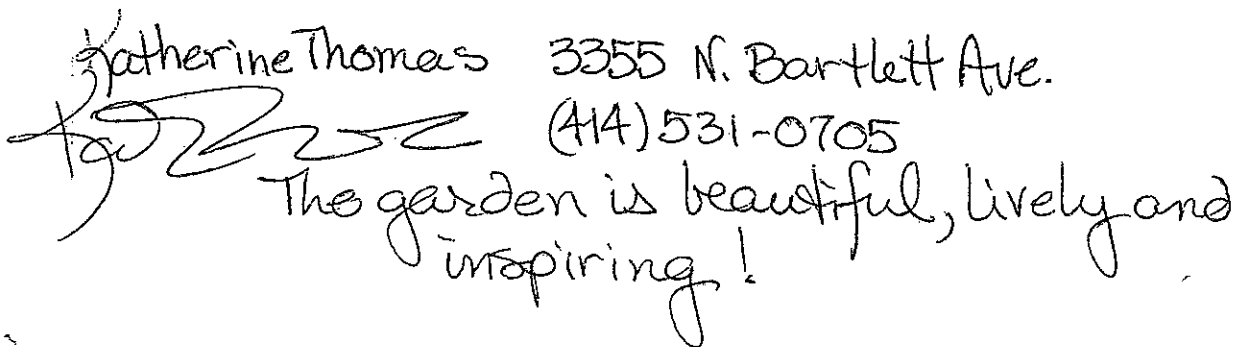 Katherine Thomas 3355 N. Bartlett Ave.
(414) 531-0705
The garden is beautiful, lively and
inspiring!